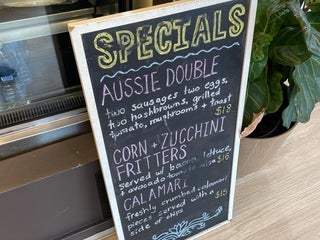 SPECIALS
AUSSIE DOUBLE
two sausages two eggs,
two hashbrowns, grilled
tomato, mushrooms + toast
$18
CORN + ZUCCHINI
FRITTERS
served w/ bacon, lettuce,
avocado tomato salsa $16
CALAMARI
freshly crumbed calamari
pieces served with a $15
side of chips